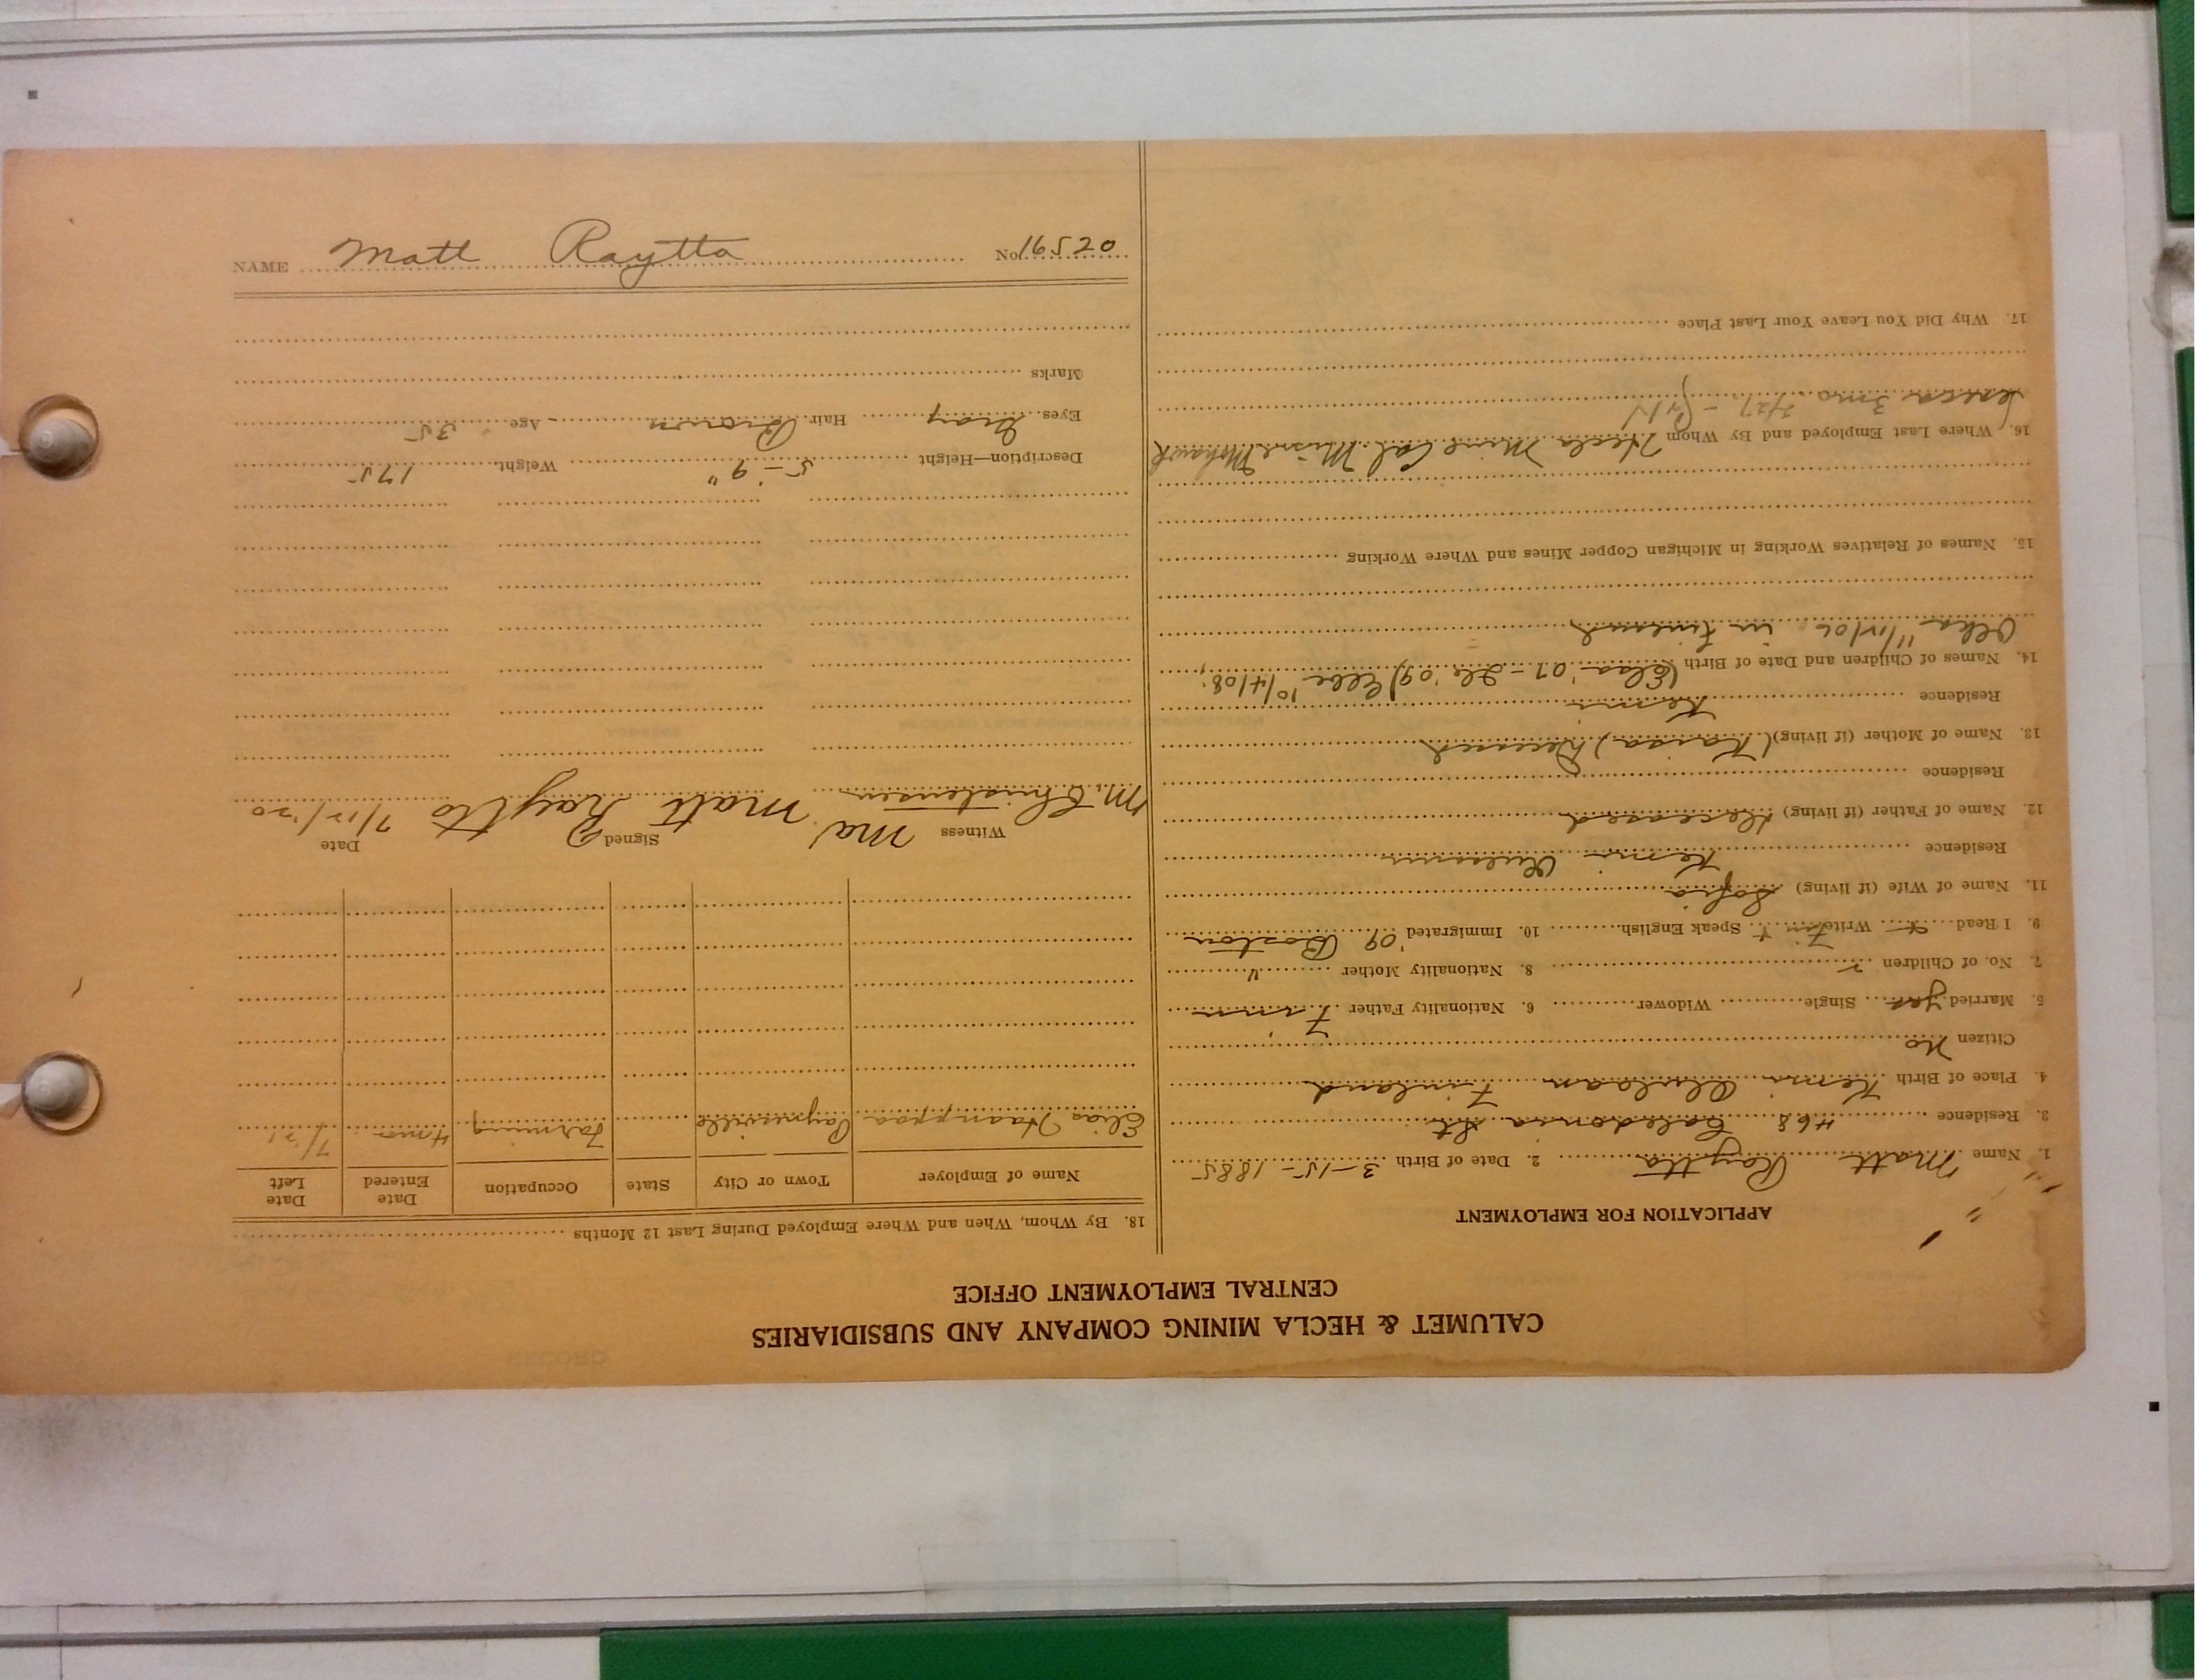 CALUMET & HECLA MINING COMPANY AND SUBSIDIARIES
CENTRAL EMPLOYMENT OFFICE
APPLICATION FOR EMPLOYMENT
1. Name Matt Raytta 2. Date of Birth 3-15-1885
3. Residence 468 Caledonia St
4. Place of Birth Kemi Finland
Citizen No
5. Married yes Single Widower 6. Nationality Father Finn
7. No. of Children 2 8. Nationality Mother "
9. I Read Write Finn Speak English 10. Immigrated '09 Boston
11. Name of Wife (if living) Sofia
Residence Kemi
12. Name of Father (if living) deceased
Residence
13. Name of Mother (if living) (Kaisa) Deceased
Residence Kemi
14. Names of Children and Date of Birth 10/4/08;
11/12/06 in Finland
15. Names of Relatives Working in Michigan Copper Mines and Where Working
16. Where Last Employed and By Whom Hecla Mine Cal. Mine Mohawk
3 mo
17. Why Did You Leave Your Last Place
18. By Whom, When and Where Employed During Last 12 Months
Name of Employer Town or City State Occupation Date Entered Date Left
Elias Haanpaa Paynesville Farming 4 mos 7/21
Witness Signed Date
M. Christensen Matt Raytto 7/12/20
Description—Height 5-9" Weight 175
Eyes Gray Hair Brown Age 35
Marks
NAME Matt Raytta No. 16520